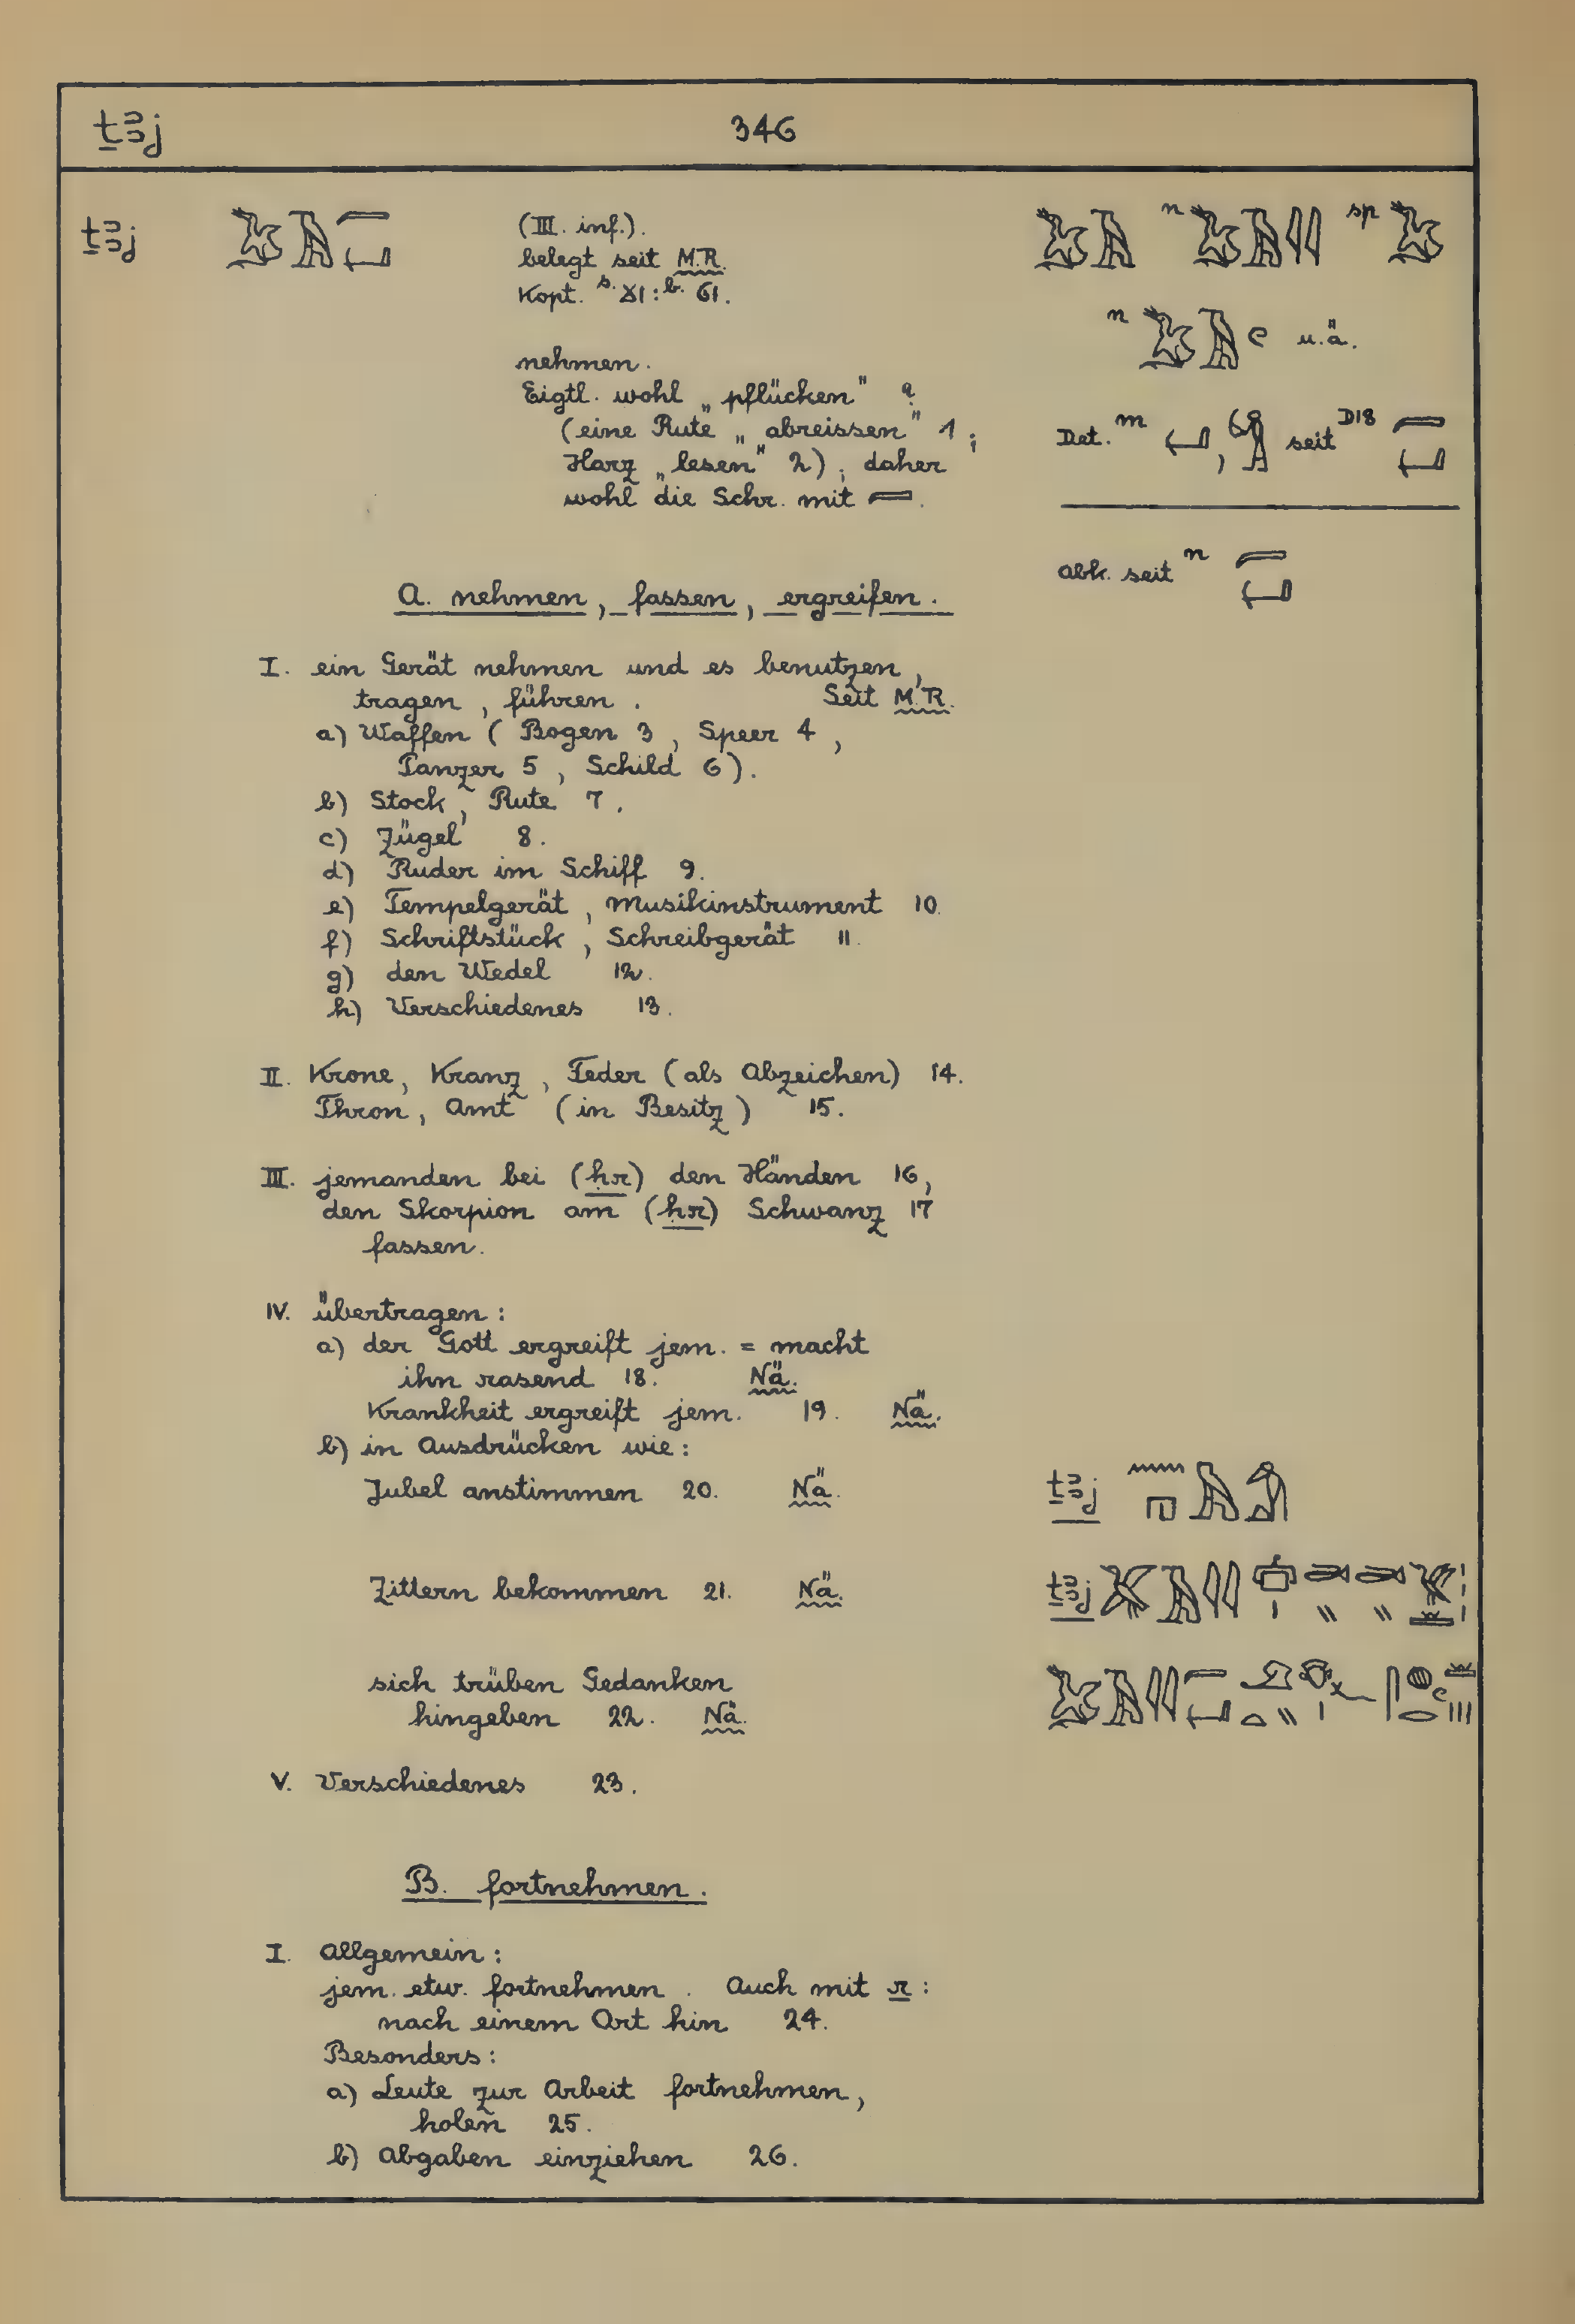 ṯꜣj 346
ṯꜣj (III. inf.).
belegt seit M.R.
Kopt. s. ϫⲓ : b. ϭⲓ.
nehmen.
Eigtl. wohl „pflücken" ?
(eine Rute „abreissen" 1;
Harz „lesen" 2); daher
wohl die Schr. mit
n sp
n u.ä.
Det. m , seit D18
Abk. seit n
A. nehmen, fassen, ergreifen.
I. ein Gerät nehmen und es benutzen,
tragen, führen. Seit M.R.
a) Waffen (Bogen 3, Speer 4,
Panzer 5, Schild 6).
b) Stock, Rute 7.
c) Zügel 8.
d) Ruder im Schiff 9.
e) Tempelgerät, Musikinstrument 10.
f) Schriftstück, Schreibgerät 11.
g) den Wedel 12.
h) Verschiedenes 13.
II. Krone, Kranz, Feder (als Abzeichen) 14.
Thron, Amt (in Besitz) 15.
III. jemanden bei (ḥr) den Händen 16,
den Skorpion am (ḥr) Schwanz 17
fassen.
IV. übertragen:
a) der Gott ergreift jem. = macht
ihn rasend 18. Nä.
Krankheit ergreift jem. 19. Nä.
b) in Ausdrücken wie:
Jubel anstimmen 20. Nä. ṯꜣj
Zittern bekommen 21. Nä. ṯꜣj
sich trüben Gedanken
hingeben 22. Nä.
V. Verschiedenes 23.
B. fortnehmen.
I. Allgemein:
jem. etw. fortnehmen. Auch mit r:
nach einem Ort hin 24.
Besonders:
a) Leute zur Arbeit fortnehmen,
holen 25.
b) Abgaben einziehen 26.